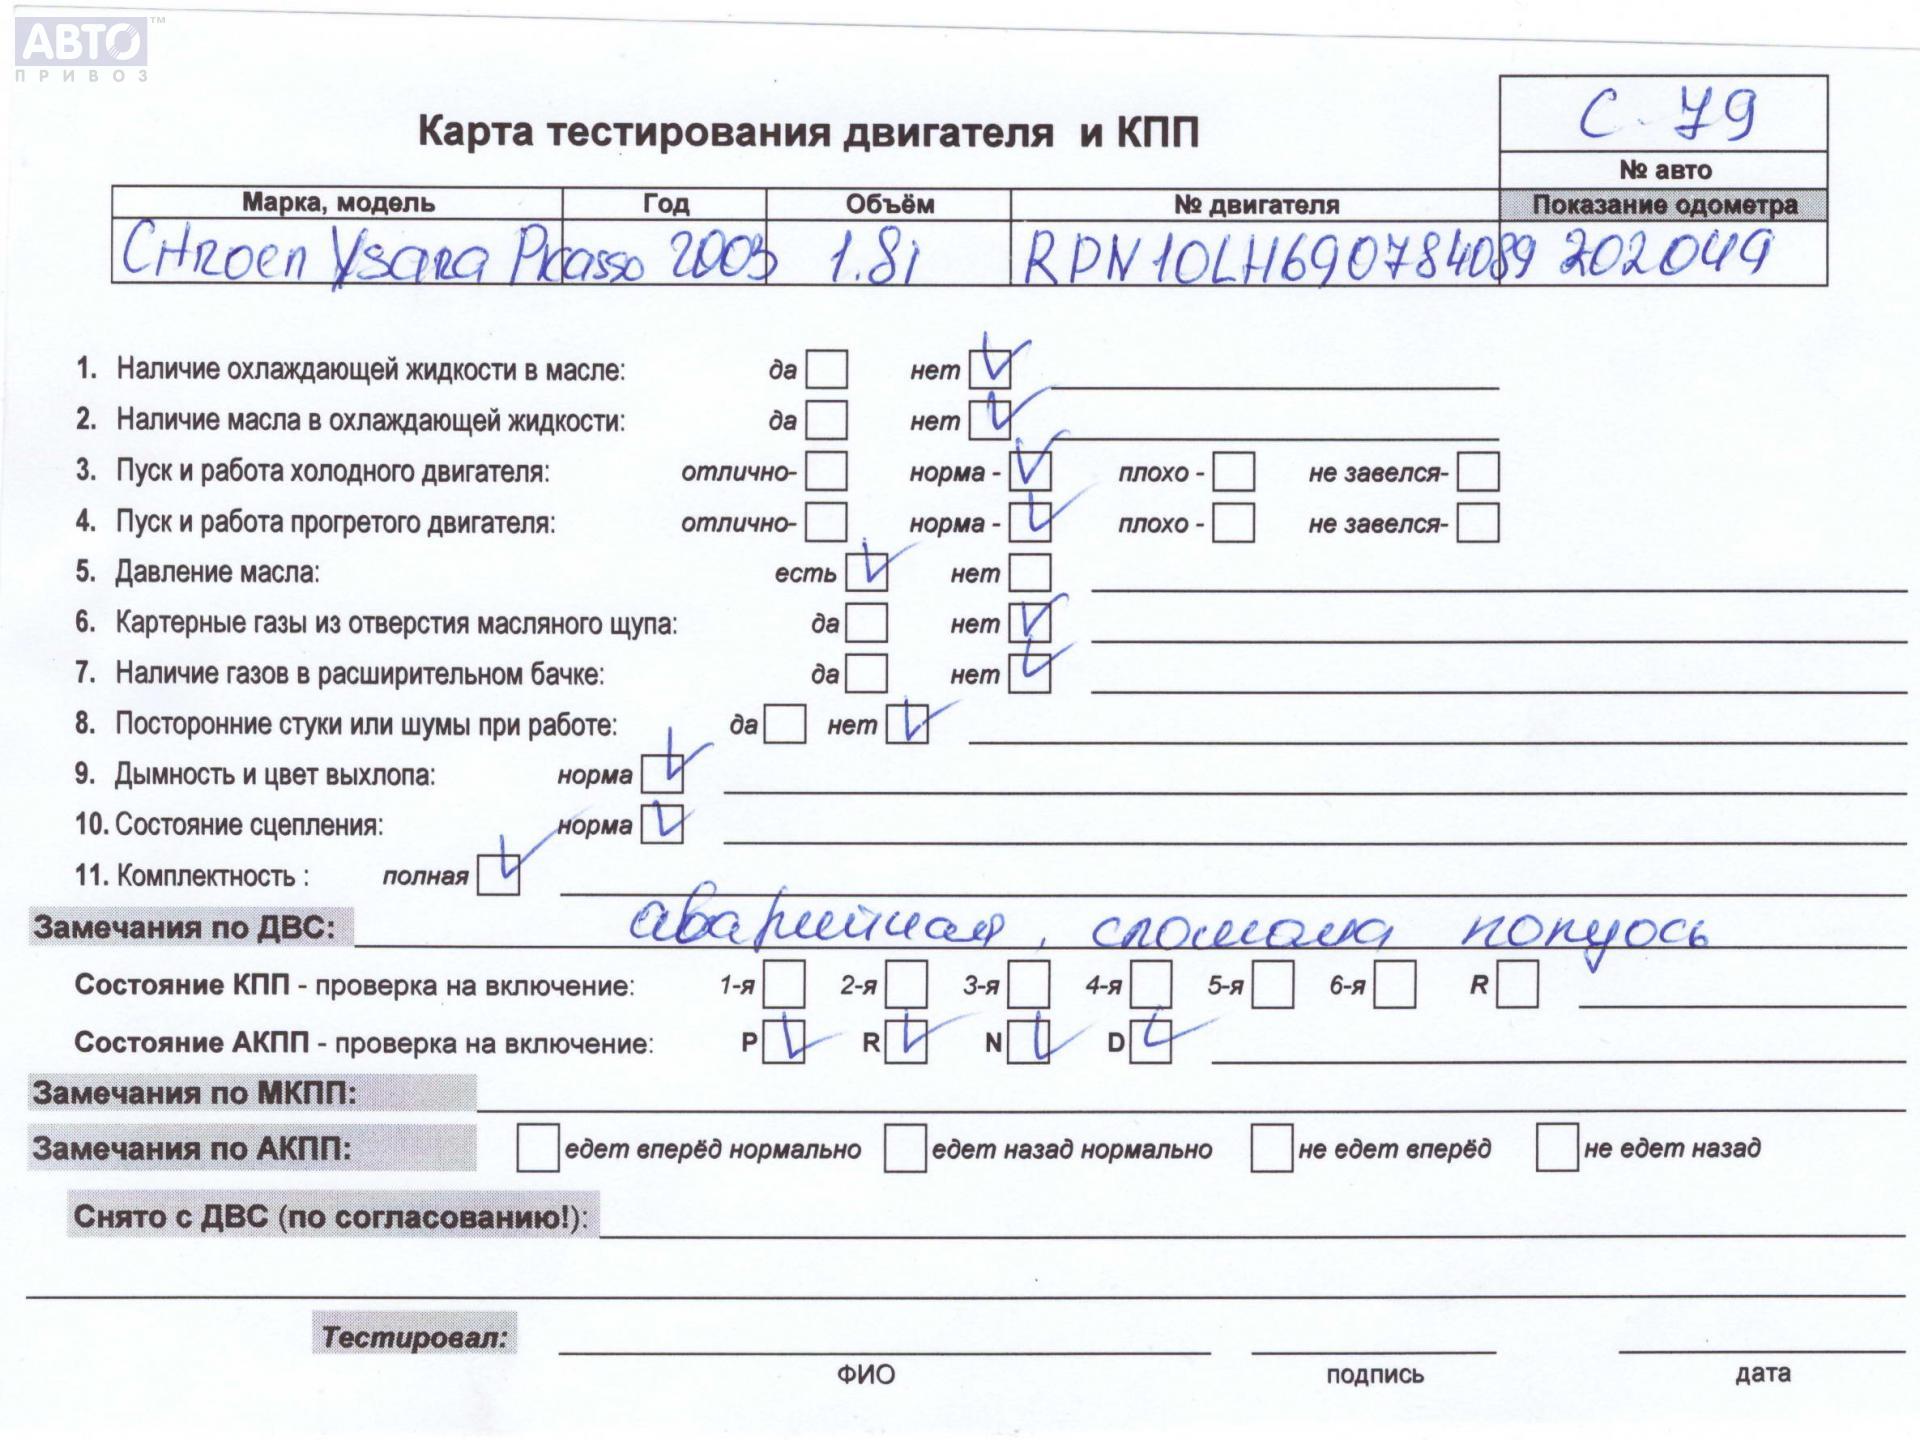 АВТО™
ПРИВОЗ
С-79
Карта тестирования двигателя и КПП
№ авто
Марка, модель Год Объём № двигателя Показание одометра
Citroen Xsara Picasso 2003 1.8i RPN10LH690784089 202049
1. Наличие охлаждающей жидкости в масле: да нет
2. Наличие масла в охлаждающей жидкости: да нет
3. Пуск и работа холодного двигателя: отлично- норма - плохо - не завелся-
4. Пуск и работа прогретого двигателя: отлично- норма - плохо - не завелся-
5. Давление масла: есть нет
6. Картерные газы из отверстия масляного щупа: да нет
7. Наличие газов в расширительном бачке: да нет
8. Посторонние стуки или шумы при работе: да нет
9. Дымность и цвет выхлопа: норма
10. Состояние сцепления: норма
11. Комплектность : полная
Замечания по ДВС: аварийная, сломана полуось
Состояние КПП - проверка на включение: 1-я 2-я 3-я 4-я 5-я 6-я R
Состояние АКПП - проверка на включение: P R N D
Замечания по МКПП:
Замечания по АКПП: едет вперёд нормально едет назад нормально не едет вперёд не едет назад
Снято с ДВС (по согласованию!):
Тестировал:
ФИО подпись дата